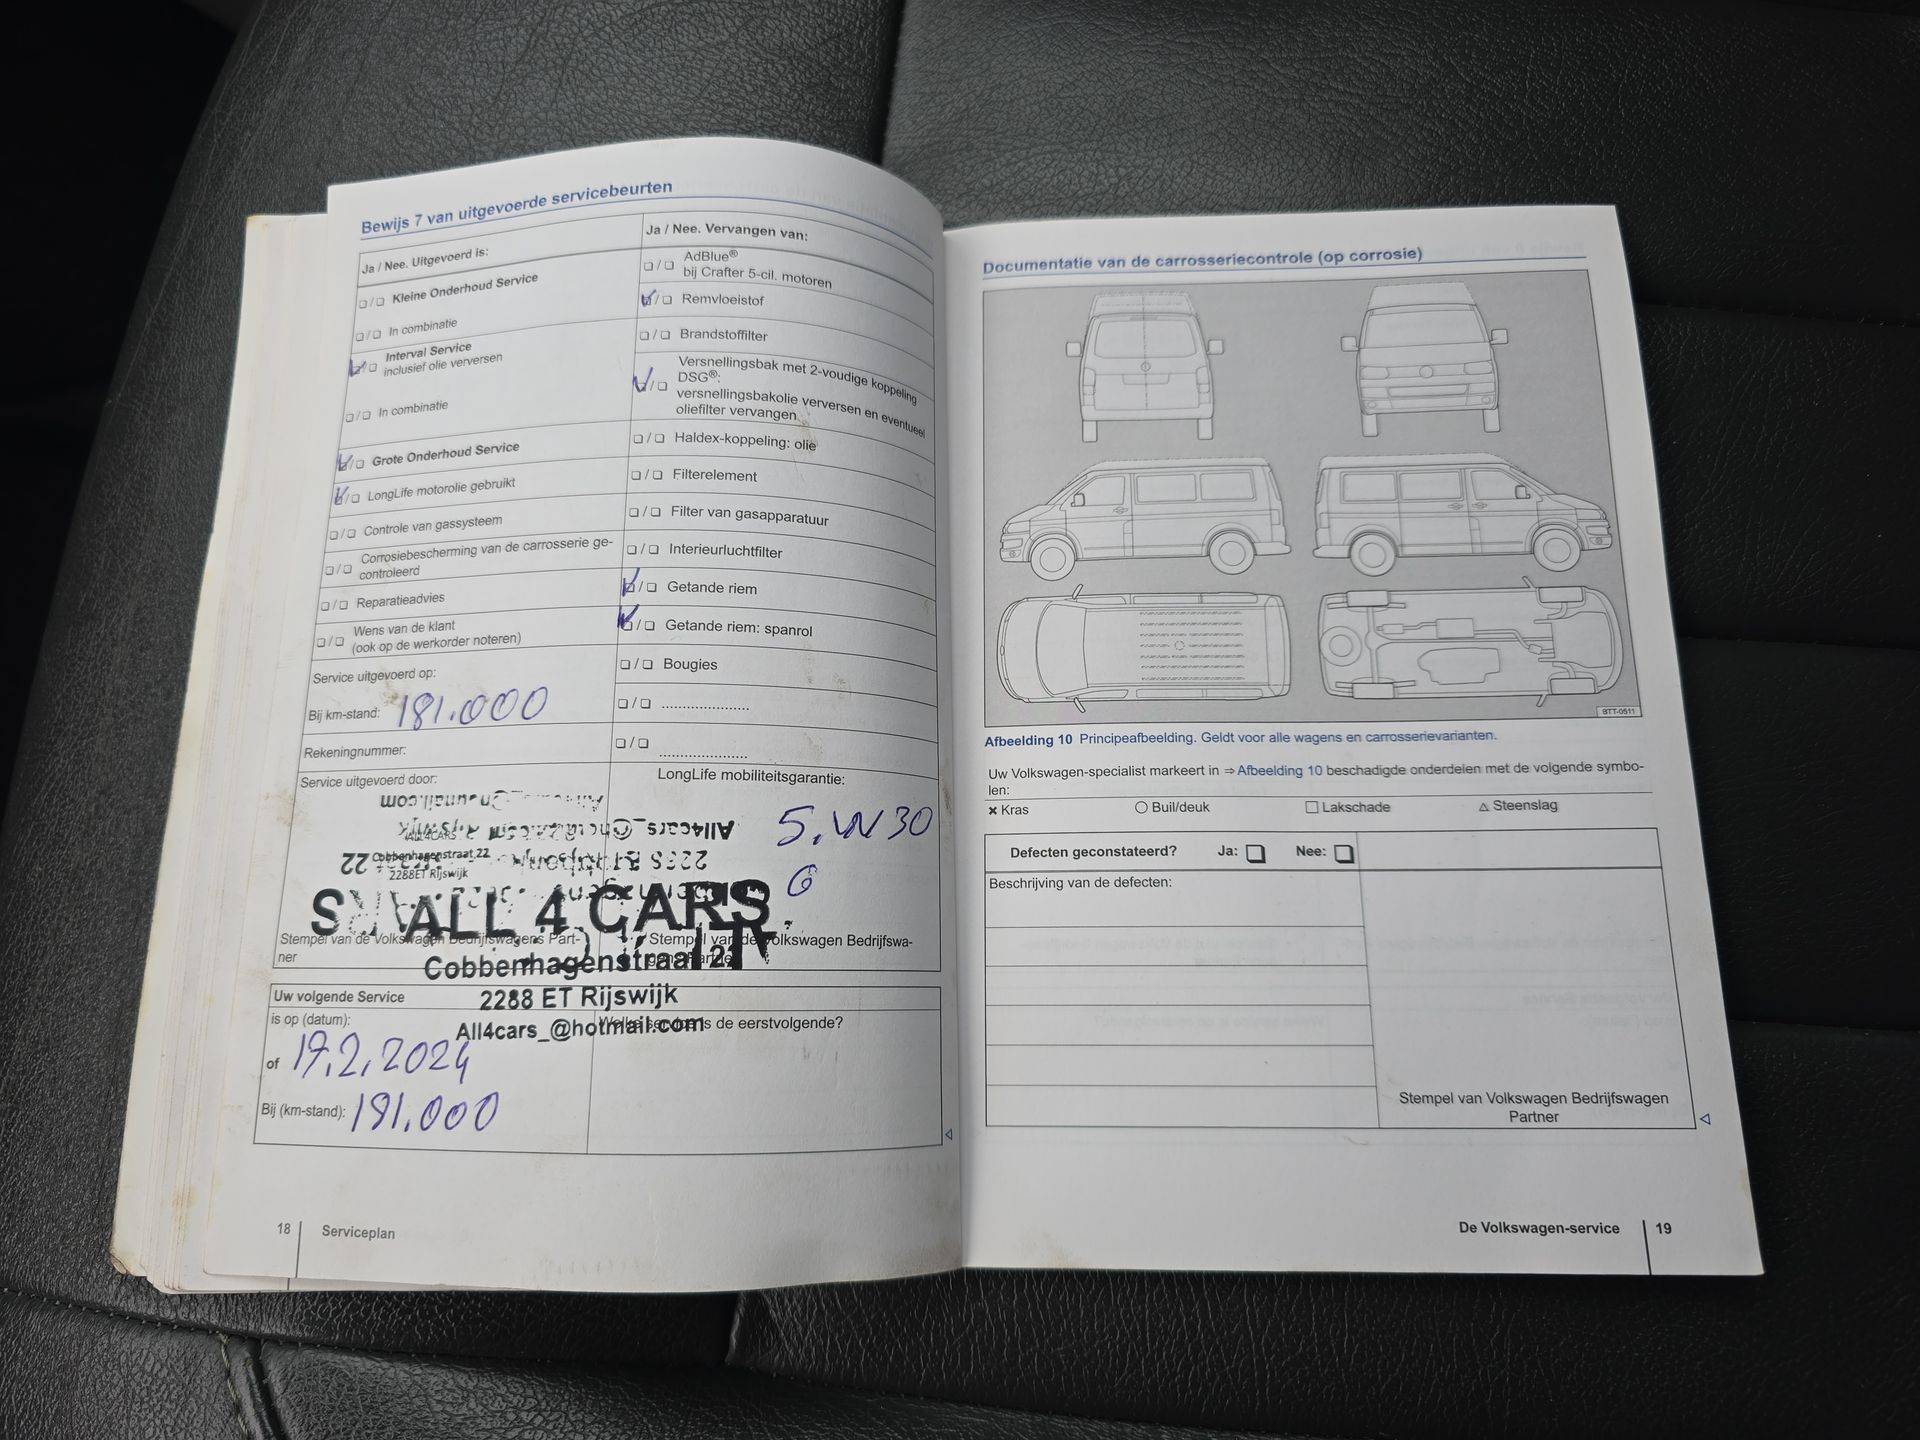 Bewijs 7 van uitgevoerde servicebeurten
Ja / Nee. Uitgevoerd is:
Kleine Onderhoud Service
In combinatie
Interval Service
inclusief olie verversen
In combinatie
Grote Onderhoud Service
LongLife motorolie gebruikt
Controle van gassysteem
Corrosiebescherming van de carrosserie ge-
controleerd
Reparatieadvies
Wens van de klant
(ook op de werkorder noteren)
Service uitgevoerd op:
Bij km-stand: 181.000
Rekeningnummer:
Service uitgevoerd door:
Ja / Nee. Vervangen van:
AdBlue®
bij Crafter 5-cil. motoren
Remvloeistof
Brandstoffilter
Versnellingsbak met 2-voudige koppeling
DSG®:
versnellingsbakolie verversen en eventueel
oliefilter vervangen
Haldex-koppeling: olie
Filterelement
Filter van gasapparatuur
Interieurluchtfilter
Getande riem
Getande riem: spanrol
Bougies
.....................
.....................
LongLife mobiliteitsgarantie:
5.W30
All4cars_@hotmail.com
ALL4CARS
Cobbenhagenstraat 22
2288ET Rijswijk
ALL 4 CARS
Stempel van de Volkswagen Bedrijfswagens Part-
ner
Stempel van de Volkswagen Bedrijfswa-
Cobbenhagenstraat 22
2288 ET Rijswijk
All4cars_@hotmail.com
Uw volgende Service
is op (datum):
of 19.2.2024
Bij (km-stand): 191.000
Welke service is de eerstvolgende?
18 Serviceplan
Documentatie van de carrosseriecontrole (op corrosie)
BTT-0511
Afbeelding 10 Principeafbeelding. Geldt voor alle wagens en carrosserievarianten.
Uw Volkswagen-specialist markeert in ⇒ Afbeelding 10 beschadigde onderdelen met de volgende symbo-
len:
× Kras ○ Buil/deuk □ Lakschade △ Steenslag
Defecten geconstateerd? Ja: Nee:
Beschrijving van de defecten:
Stempel van Volkswagen Bedrijfswagen
Partner
De Volkswagen-service 19